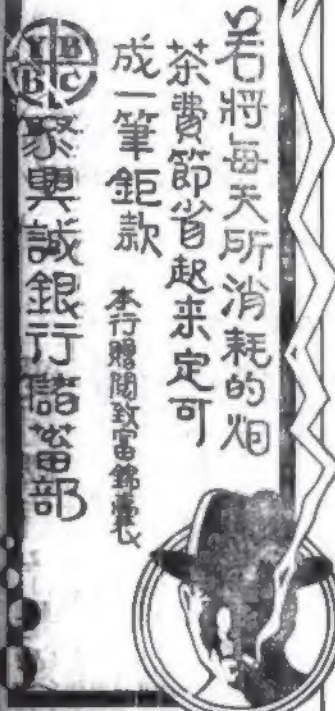 若將每天所消耗的烟
茶費節省起来定可
成一筆鉅款
本行贈閱致富錦囊
YBBC
聚興誠銀行儲蓄部